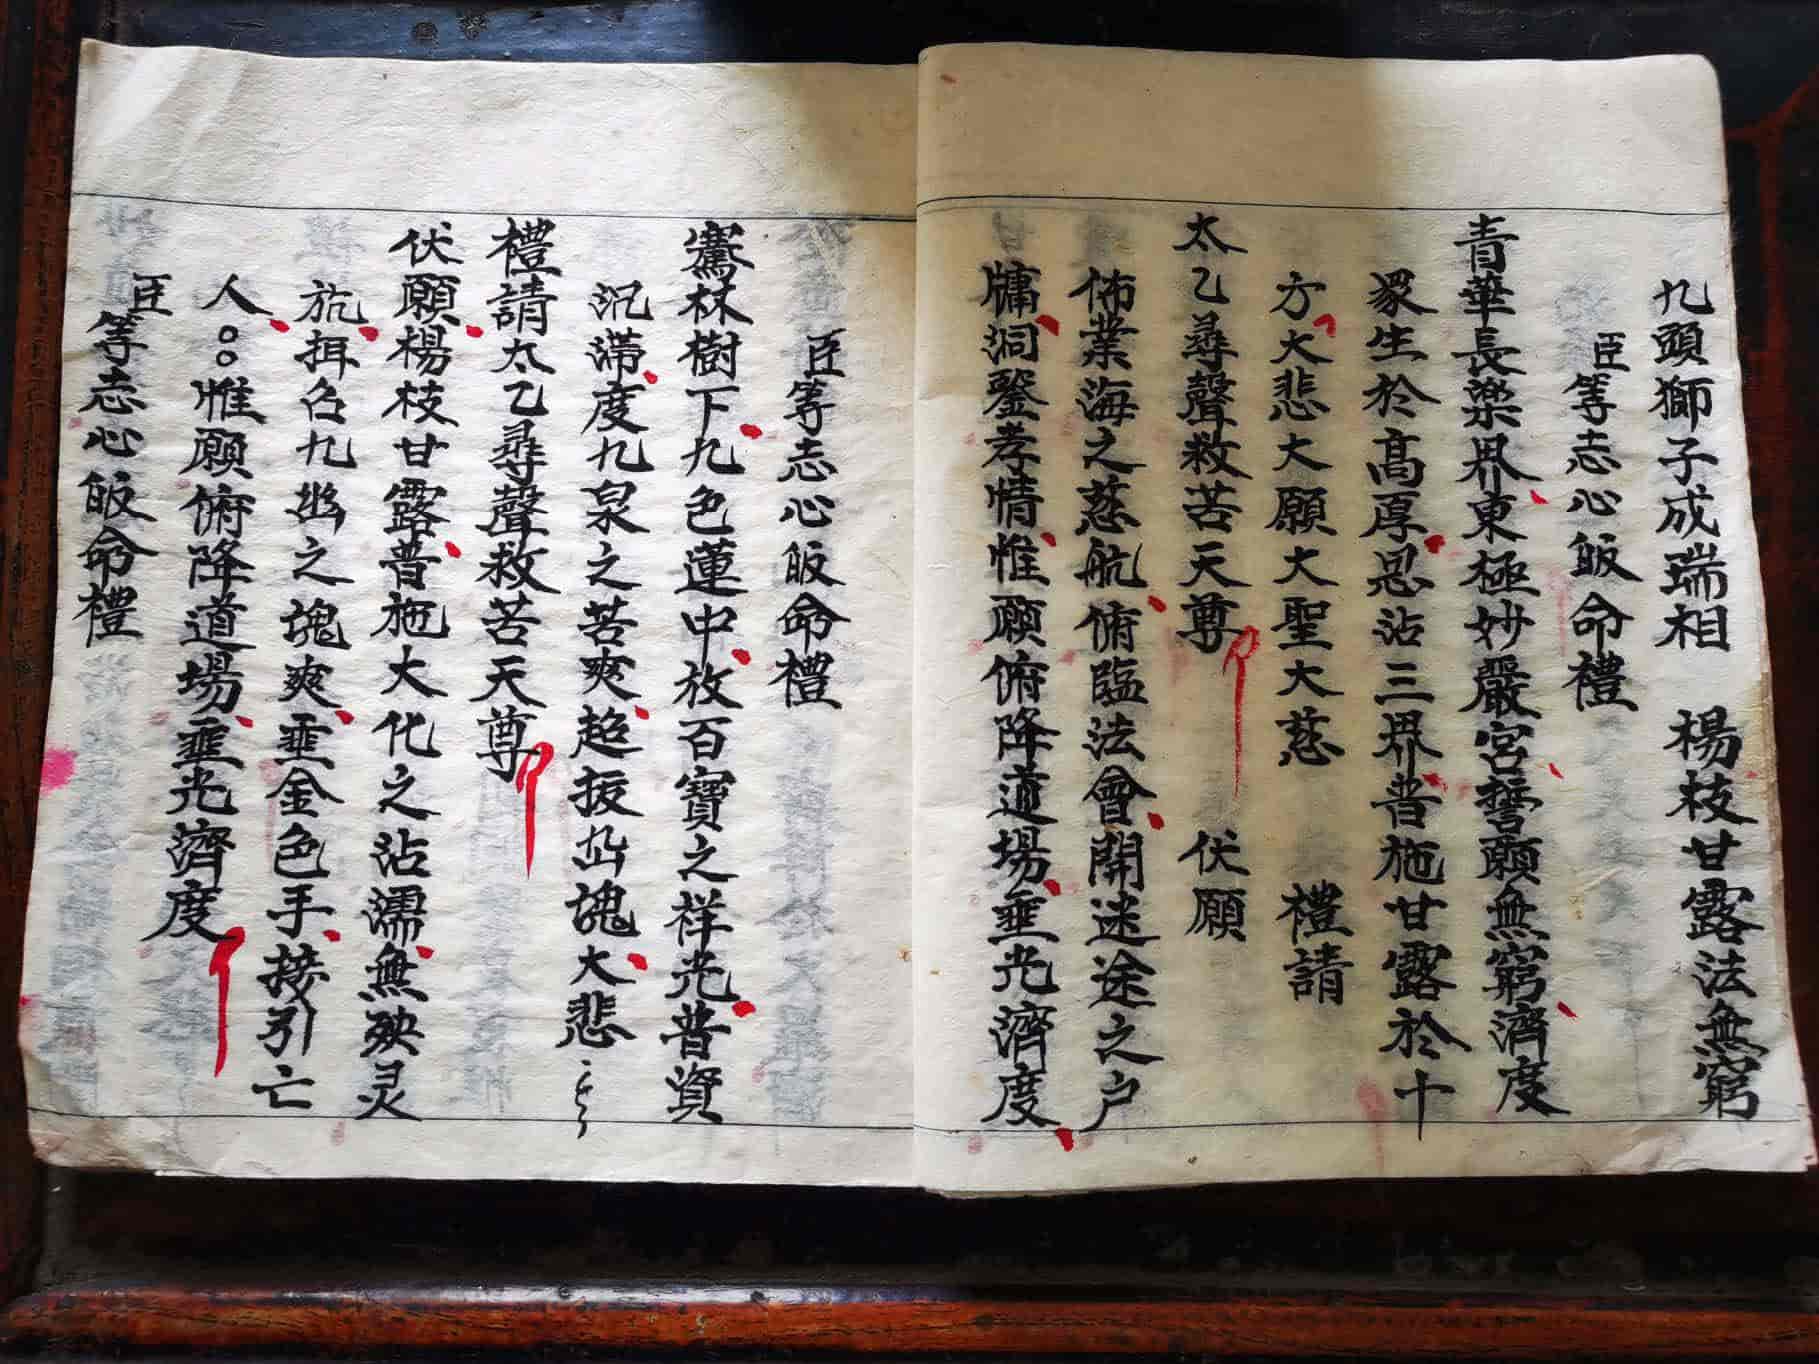 九頭獅子成瑞相 楊枝甘露法無窮
臣等志心皈命禮
青華長樂界東極妙嚴宮誓願無窮濟度
眾生於高厚恩沾三界普施甘露於十
方大悲大願大聖大慈 禮請
太乙尋聲救苦天尊 伏願
佈業海之慈航俯臨法會開迷途之户
牗洞鑒孝情惟願俯降道場垂光濟度
臣等志心皈命禮
騫林樹下九色蓮中放百寶之祥光普資
沉滯度九泉之苦爽超拔幽魂大悲
禮請太乙尋聲救苦天尊
伏願楊枝甘露普施大化之沾濡無殃灵
旂招九幽之魂爽垂金色手接引亡
人○○惟願俯降道場垂光濟度
臣等志心皈命禮